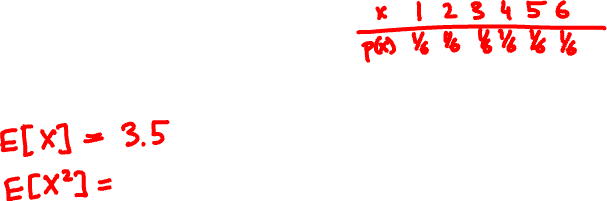 x 1 2 3 4 5 6
p(x) 1/6 1/6 1/6 1/6 1/6 1/6
E[X] = 3.5
E[X²] =